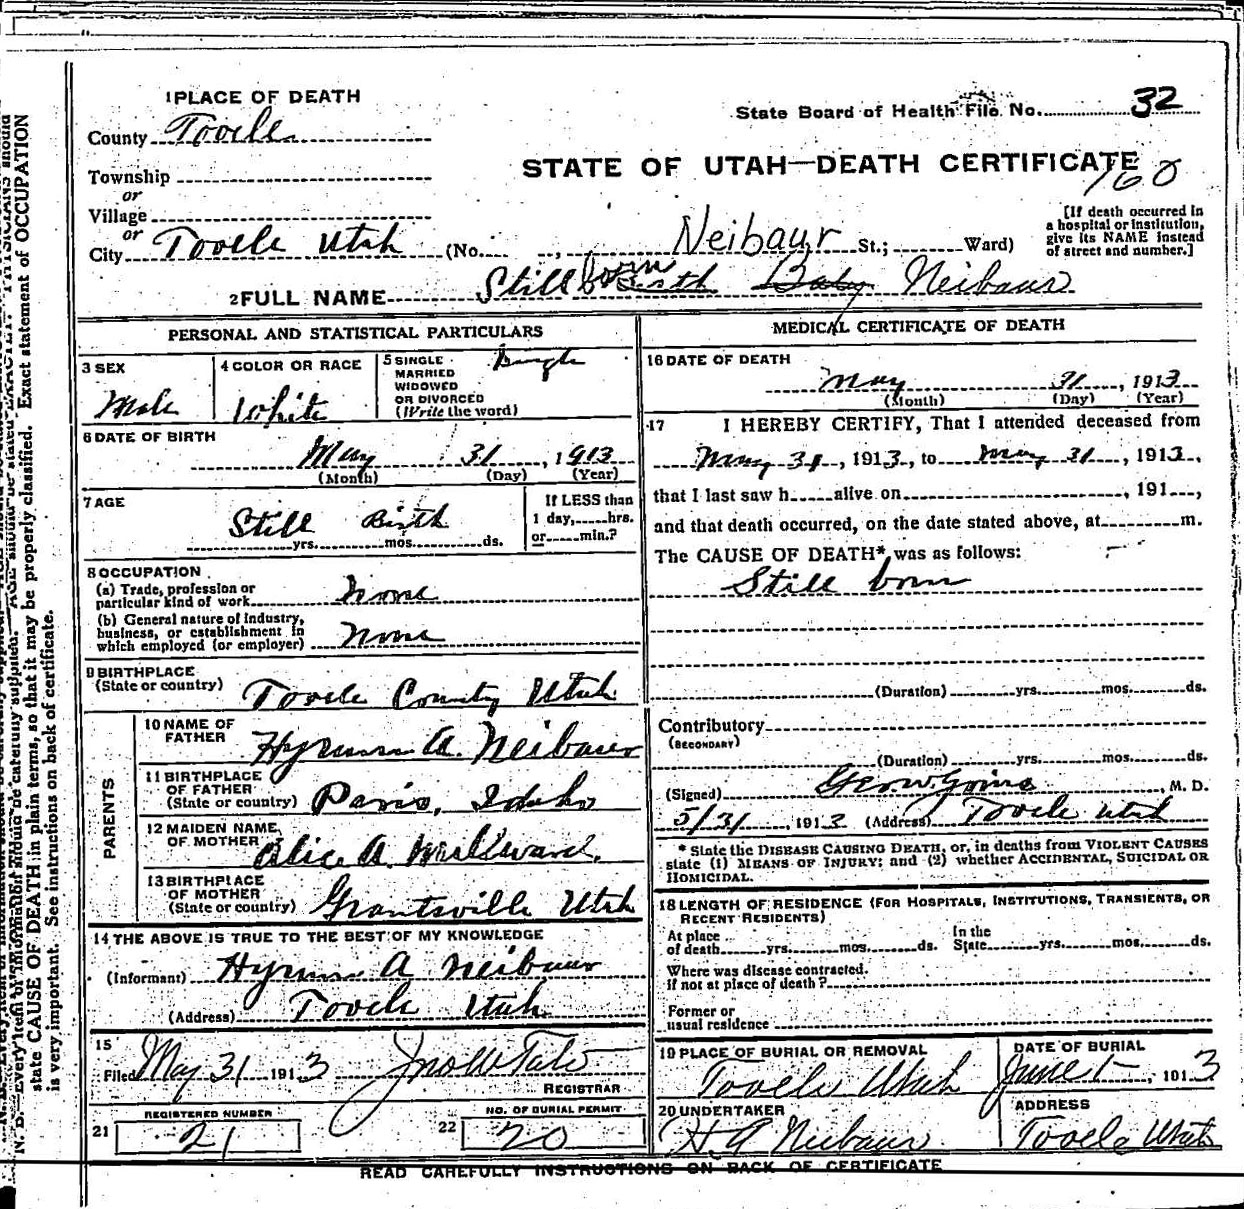 1 PLACE OF DEATH
State Board of Health File No. 32
County Tooele
STATE OF UTAH—DEATH CERTIFICATE
160
Township
or
Village
or
City Tooele Utah (No. , Neibaur St.; Ward)
[If death occurred in
a hospital or institution,
give its NAME instead
of street and number.]
2 FULL NAME Still born Birth Baby Neibaur
PERSONAL AND STATISTICAL PARTICULARS
3 SEX
Male
4 COLOR OR RACE
White
5 SINGLE
MARRIED
WIDOWED
OR DIVORCED
(Write the word)
Single
6 DATE OF BIRTH
May 31, 1913
(Month) (Day) (Year)
7 AGE
Still Birth
yrs. mos. ds.
If LESS than
1 day, hrs.
or min.?
8 OCCUPATION
(a) Trade, profession or
particular kind of work None
(b) General nature of industry,
business, or establishment in
which employed (or employer) None
9 BIRTHPLACE
(State or country) Tooele County Utah
PARENTS
10 NAME OF
FATHER Hyrum A. Neibaur
11 BIRTHPLACE
OF FATHER
(State or country) Paris, Idaho
12 MAIDEN NAME
OF MOTHER Alice A Millward.
13 BIRTHPLACE
OF MOTHER
(State or country) Grantsville Utah
14 THE ABOVE IS TRUE TO THE BEST OF MY KNOWLEDGE
(Informant) Hyrum A Neibaur
(Address) Tooele Utah
15
Filed May 31 1913 Jno W Tate
REGISTRAR
REGISTERED NUMBER
21 21
NO. OF BURIAL PERMIT
22 20
MEDICAL CERTIFICATE OF DEATH
16 DATE OF DEATH
May 31, 1913
(Month) (Day) (Year)
17 I HEREBY CERTIFY, That I attended deceased from
May 31, 1913, to May 31, 1913,
that I last saw h alive on , 191 ,
and that death occurred, on the date stated above, at m.
The CAUSE OF DEATH* was as follows:
Still born
(Duration) yrs. mos. ds.
Contributory
(SECONDARY)
(Duration) yrs. mos. ds.
(Signed) Geo. W. Goins, M. D.
5/31, 1913 (Address) Tooele Utah
* State the DISEASE CAUSING DEATH, or, in deaths from VIOLENT CAUSES
state (1) MEANS OF INJURY; and (2) whether ACCIDENTAL, SUICIDAL OR
HOMICIDAL.
18 LENGTH OF RESIDENCE (FOR HOSPITALS, INSTITUTIONS, TRANSIENTS, OR
RECENT RESIDENTS)
At place
of death yrs. mos. ds.
In the
State yrs. mos. ds.
Where was disease contracted.
if not at place of death?
Former or
usual residence
19 PLACE OF BURIAL OR REMOVAL
Tooele Utah
DATE OF BURIAL
June 1, 1913
20 UNDERTAKER
H A Neibaur
ADDRESS
Tooele Utah
READ CAREFULLY INSTRUCTIONS ON BACK OF CERTIFICATE
state CAUSE OF DEATH in plain terms, so that it may be properly classified. Exact statement of OCCUPATION
is very important. See instructions on back of certificate.